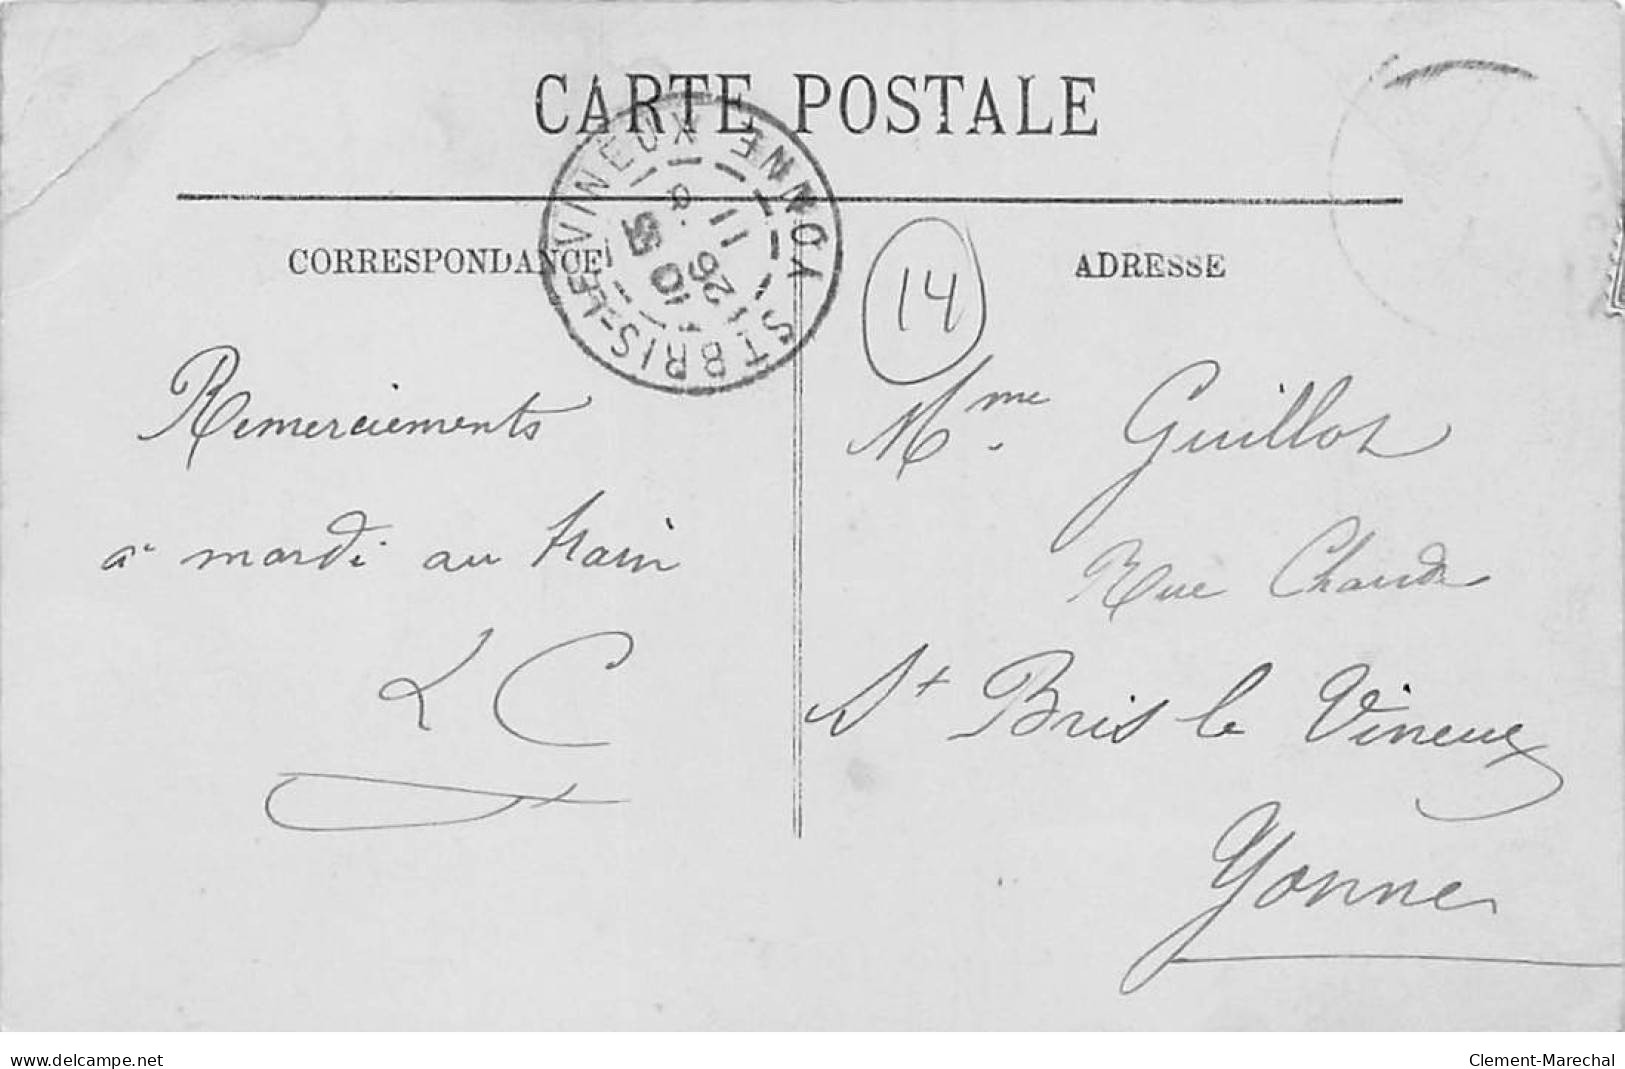 CARTE POSTALE
ST BRIS-LE-VINEUX YONNE
11
26
10
CORRESPONDANCE
ADRESSE
14
Remerciements
a mardi au train
L C
Mme Guillot
Rue Chaude
St Bris le Vineux
Yonne
www.delcampe.net
Clement-Marechal